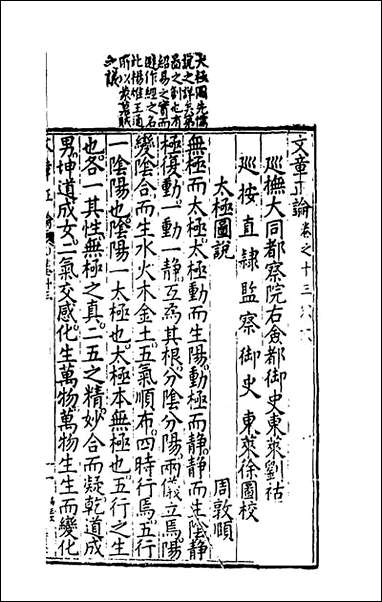 太極圖先儒
說之詳矣第
啚之創也有
紹易之實而
避作經之名
此揚雄王通
所以裳萬眂
之議
文章正論卷之十三
巡撫大同都察院右僉都御史東萊劉祜
巡按直隸監察御史東萊徐圖校
太極圖說
周敦頤
無極而太極太極動而生陽動極而靜靜而生陰靜
極復動一動一靜互爲其根分陰分陽兩儀立焉陽
變陰合而生水火木金土五氣順布四時行焉五行
一陰陽也陰陽一太極也太極本無極也五行之生
也各一其性無極之真二五之精妙合而凝乾道成
男坤道成女二氣交感化生萬物萬物生生而變化